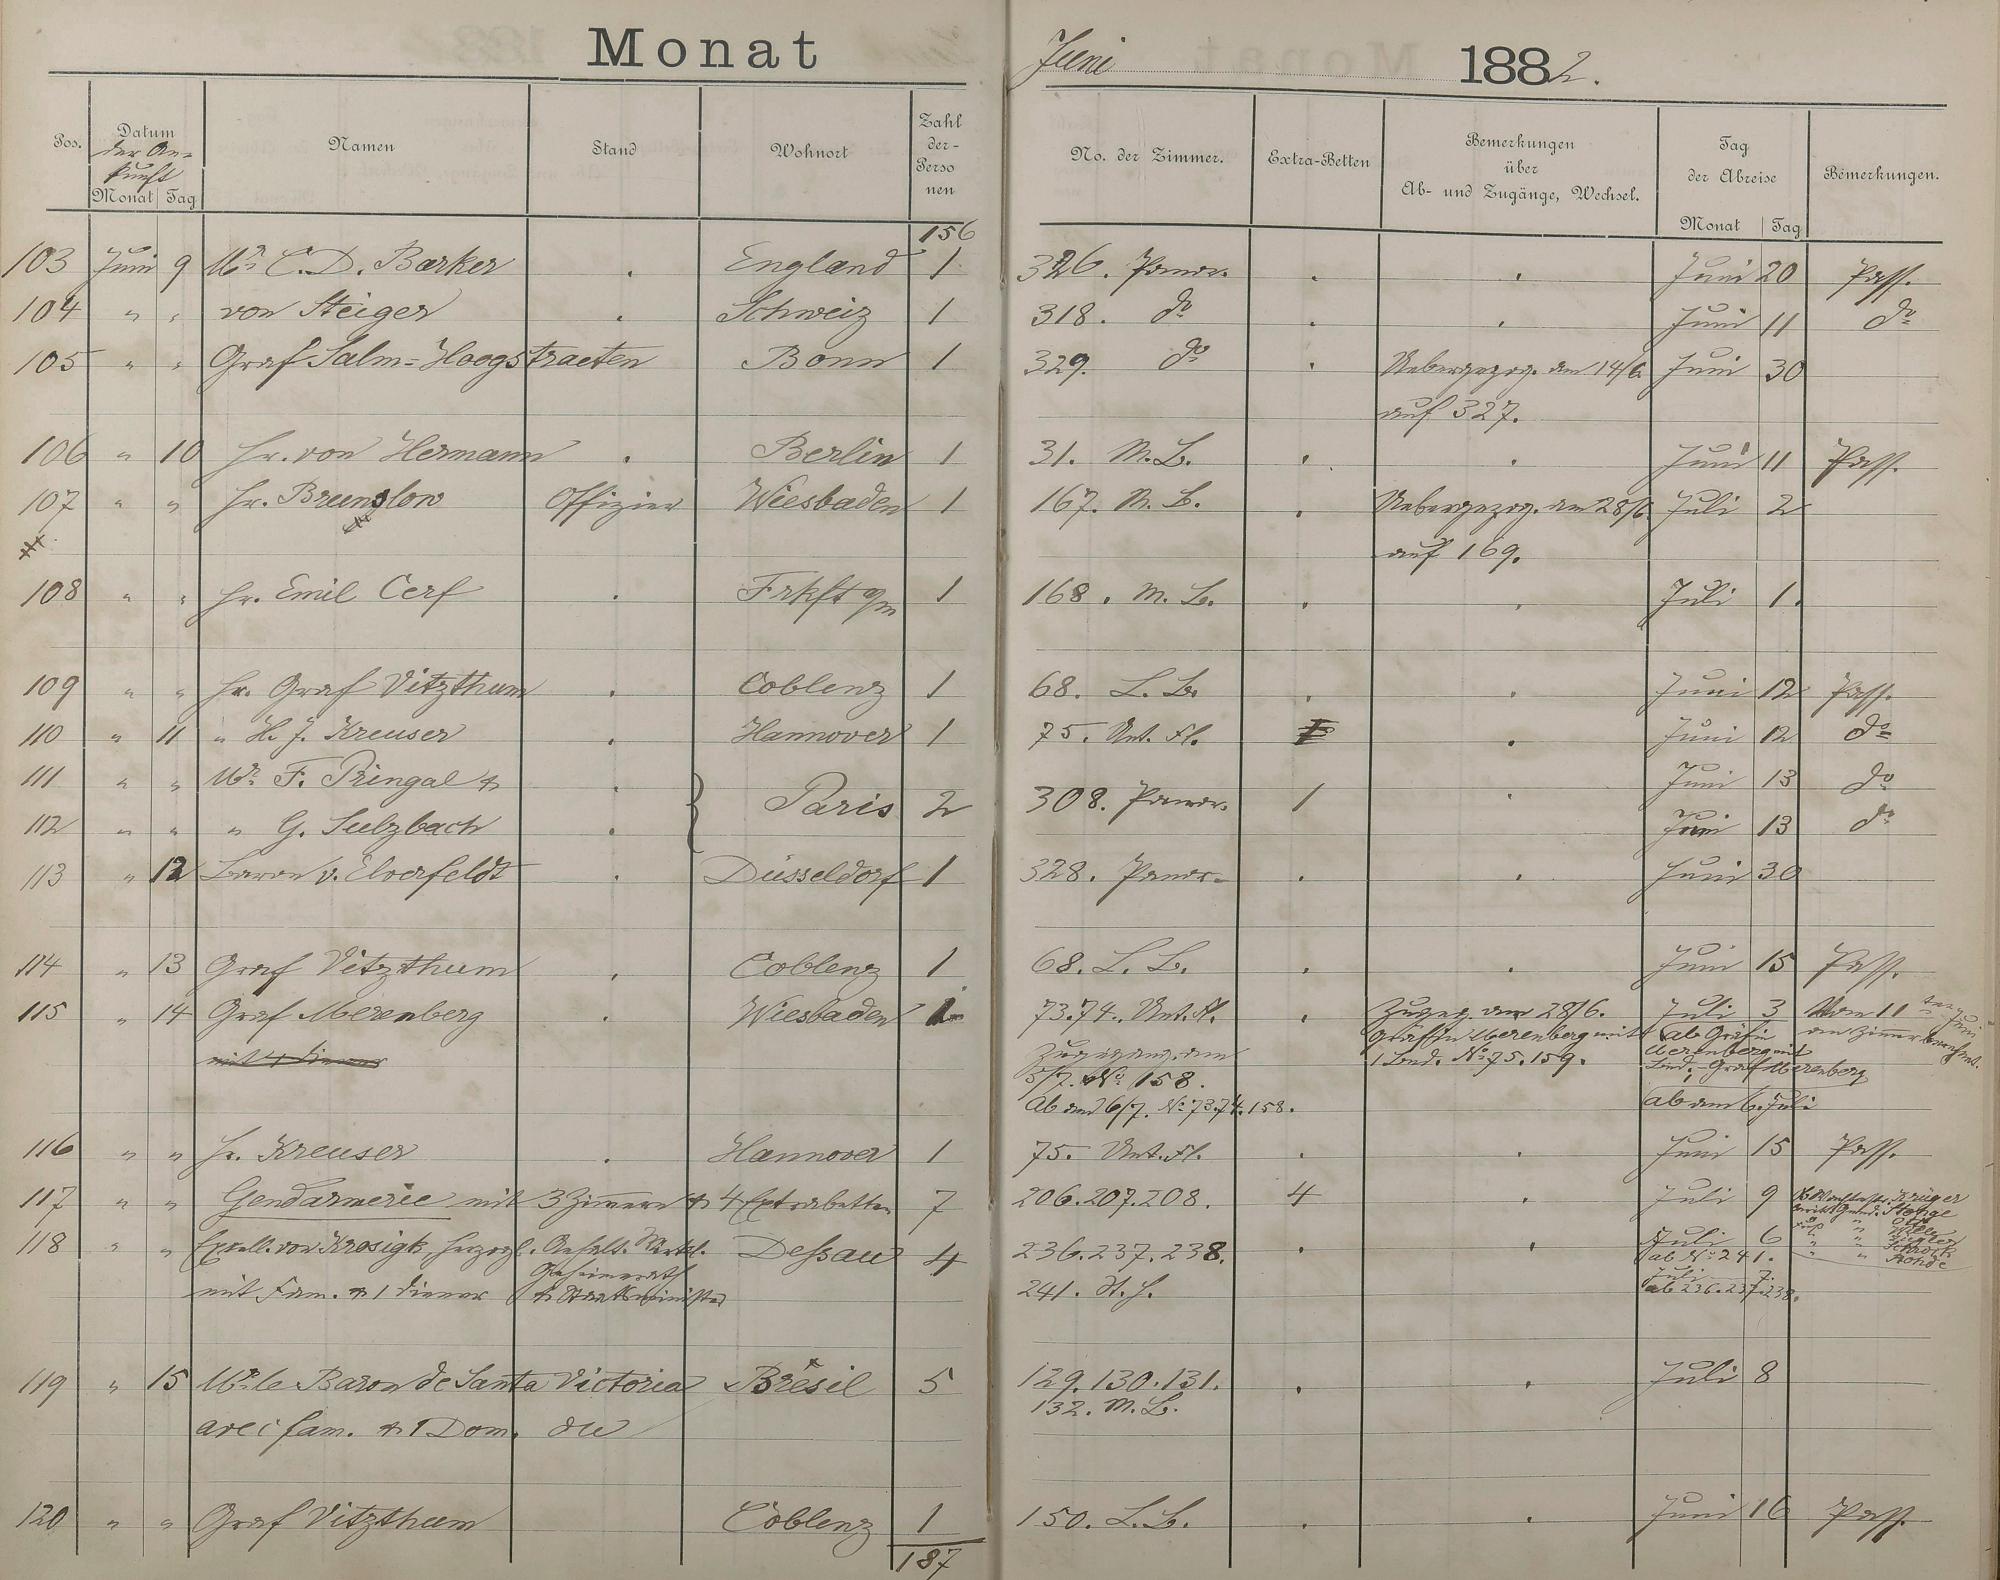 Monat
Juni 1882.
Pos. Datum der Ankunft Monat Tag Namen Stand Wohnort Zahl der Personen No. der Zimmer. Extra-Betten Bemerkungen über Ab- und Zugänge, Wechsel. Tag der Abreise Monat Tag Bemerkungen.
156
103 Juni 9 Mr. C. D. Barker . England 1 326. Panor. . . Juni 20 Pass.
104 " " von Steiger . Schweiz 1 318. do . . Juni 11 do
105 " " Graf Salm-Hoogstraeten Bonn 1 329. do . Uebergezog. am 14/6 Juni 30
auf 327.
106 " 10 Hr. von Hermann . Berlin 1 31. M. B. . . Juni 11 Pass.
107 " " Hr. Brunslow Offizier Wiesbaden 1 167. M. B. . Uebergezog. am 28/6. Juli 2
auf 169.
108 " " Hr. Emil Cerf . Frkft a/m 1 168. M. B. . . Juli 1.
109 " " Hr. Graf Vitzthum . Coblenz 1 68. L. B. . . Juni 12 Pass.
110 " 11 " H. J. Kreuser . Hannover 1 75. Unt. Fl. . Juni 12 do
111 " " Mr. F. Pringal + . } Paris 2 308. Panor. 1 . Juni 13 do
112 " " " G. Sulzbach . Juni 13 do
113 " 12 Baron v. Elverfeldt . Düsseldorf 1 328. Panor. . . Juni 30
114 " 13 Graf Vitzthum . Coblenz 1 68. L. B. . . Juni 15 Pass.
115 " 14 Graf Merenberg . Wiesbaden 1 73.74. Unt. Fl. . Zugeg. am 28/6. Juli 3 Vom 11
mit 1 Diener Zugegang. am Gräfin Merenberg mit ab Gräfin
1 Bed. No 75. 159. Merenberg mit
5/7. No 158. Bed. - Graf Merenberg
Ab am 6/7. No 73.74.158. ab am 6. Juli
116 " " Hr. Kreuser . Hannover 1 75. Unt. Fl. . . Juni 15 Pass.
117 " " Gendarmerie mit 3 Zimmern + 4 Extrabetten 7 206.207.208. 4 . Juli 9 Krüger
Stenge
118 " " Excell. von Krosigk, herzogl. Anhalt. Wirkl. Dessau 4 236.237.238. . . Juli 6
Geheimrath ab No 241.
mit Fam. + 1 Diener + Staatsminister 241. H. Juli 7.
ab 236.237.238.
Rohde
119 " 15 Mr. le Baron de Santa Victoria Brésil 5 129.130.131. . . Juli 8
132. M. B.
avec fam. + 1 Dom. du
120 " " Graf Vitzthum Coblenz 1 150. L. B. . . Juni 16 Pass.
187